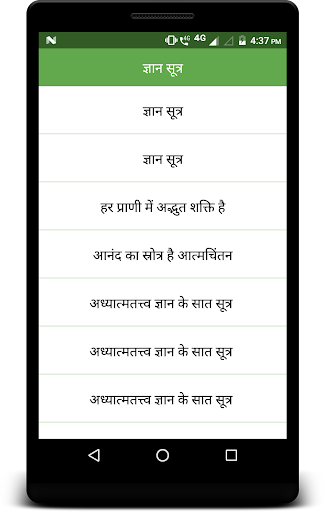 4G 4G 4:37 PM
ज्ञान सूत्र
ज्ञान सूत्र
ज्ञान सूत्र
हर प्राणी में अद्भुत शक्ति है
आनंद का स्रोत्र है आत्मचिंतन
अध्यात्मतत्त्व ज्ञान के सात सूत्र
अध्यात्मतत्त्व ज्ञान के सात सूत्र
अध्यात्मतत्त्व ज्ञान के सात सूत्र